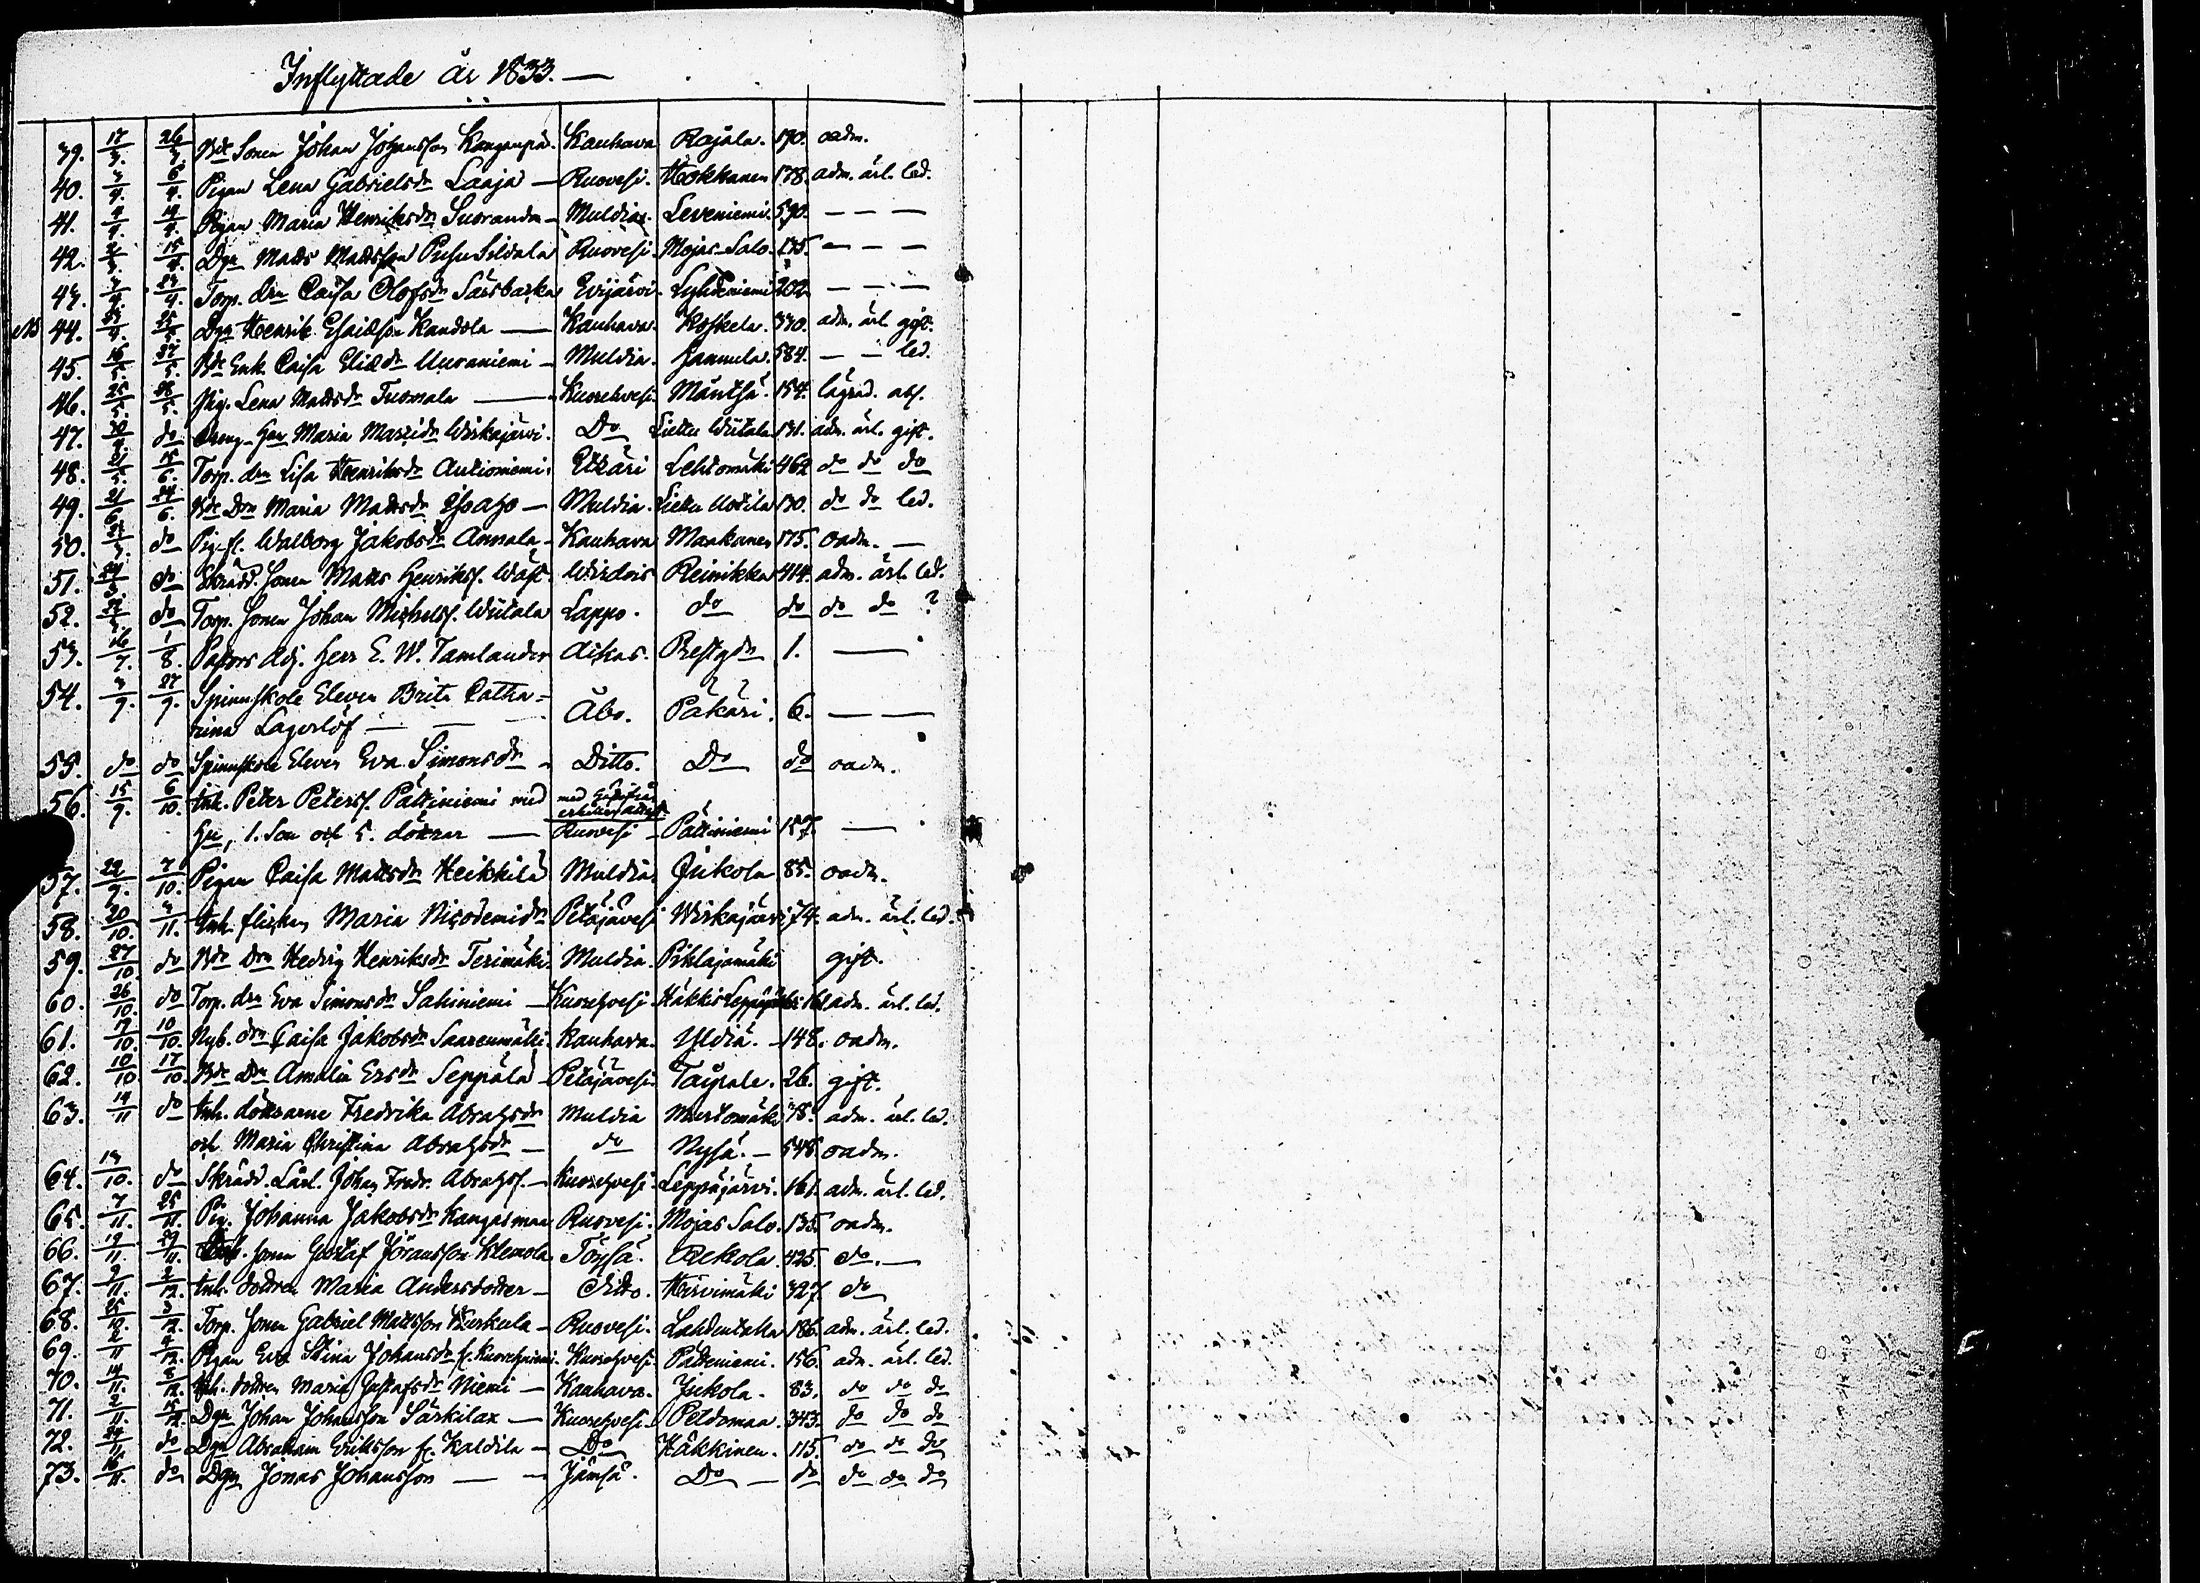 Inflyttade år 1833. —
39. 17/3. 26/3. Bde Sonen Johan Johansson Kangenpä. Kauhava Rajala. 190. oadm.
40. 3/4. 6/4. Pigan Lena Gabrielsdr Laaja — Ruovesi. Hokkanen 178. adm. ärl. led.
41. 4/4. 14/4. Pigan Maria Henriksdr Suoranda — Muldia. Leveniemi. 590. — — —
42. 2/3. 15/4. Dgn Matts Mattsson Ruovesi. Mojas Salo. 135. — — —
43. 3/4. 23/4. Torp. drn Caisa Olofsdr Särsbacka Evijärvi. 202. — — —
NB 44. 23/4. 25/5. Dgn Henrik Esaiæson Kandola — Kauhava. Koskela. 330. adm. ärl. gift.
45. 16/5. 27/5. Bde Enk. Caisa Eliædr Uuraniemi — Muldia. Hannula. 584. — — led.
46. 25/5. 28/5. Pig. Lena Mattsdr Tuomala — Kuorehvesi. Mäntsä. 154. lägrad. abs.
47. 30/4. do Dreng. Hu Maria Mattsdr Wirkajärvi. Do Lietu Wiitala 131. adm. ärl. gift.
48. 21/5. 15/6. Torp. drn Lisa Henriksdr Autioniemi. Etzäri Lehtomäki 462 do do do
49. 21/6. 24/6. Bde Drn Maria Mattsdr — Muldia. Lietu 130. do do led.
50. do Pig. fl. Walborg Jakobsdr Annala — Kauhava Maakanen 175. oadm. —
51. 24/3. do Skrädd. Sonen Matts Henrikss. Wäst. Wirdois Reinikka 414. adm. ärl. led.
52. do Torp. Sonen Johan Michelss. Wiitala Lappo. do do do do ?
53. 16/7. 1/8. Pastors Adj. Herr E. W. Tamlander Aikas. Prestgdn 1. —
54. 3/9. 27/9. Spinnskole Eleven Brita Catha=
rina Lagerlöf — — — Åbo. Päkäri. 6. — —
55. do do Spinnskole Eleven Eva Simonsdr — Ditto. Do do oadm.
56. 15/9. 6/10. Inh. Peter Peterss. Pättiniemi med med
Hu, 1. Son och 5. döttrar — Ruovesi — Pättiniemi 157. —
57. 22/9. 7/10. Pigan Caisa Mattsdr Heikkilä Muldia. Jukola 85. oadm.
58. 20/10. 3/11. Inh. flickan Maria Nicodemidr Petäjävesi Wirkajärvi 74. adm. ärl. led.
59. 27/10 do Bde Drn Hedvig Henriksdr Terimäki Muldia. Pihlajamäki gift.
60. 26/10. do Torp. drn Eva Simonsdr Saliniemi — Kuorehvesi. Häkkis Leppäjärvi 161 adm. ärl. led.
61. 17/10. 10/10. Nyb. drn Caisa Jakobsdr Saarenmäki. Kauhava. Yldiä. — 148. oadm.
62. 10/10 17/10. Bde Drn Amalia Ersdr Seppälä — Petäjävesi. Taipale. 26. gift.
63. 14/11 do Inh. döttrarne Fredrika Abrahsdr Muldia 78. adm. ärl. led.
och Maria Christina Abrahsdr — do Nysä. — 548. oadm.
64. 13/10. do Skrädd. Lärl. Johan Fredr. Abrahss. — Kuorehvesi. Leppäjärvi. 161. adm. ärl. led.
65. 7/11. 25/11. Pig. Johanna Jakobsdr Kangasmaa Ruovesi. Mojas Salo. 135. oadm.
66. 19/11 29/11. Sonen Gustaf Jöransson Klemola Töysä. Rekola. 425. do. —
67. 9/11. 2/12. Inh. dottren Maria Andersdotter — Ditto. Hirvimäki 327. do
68. 25/10. 3/12. Torp. Sonen Gabriel Mattsson Kurkela — Ruovesi. Lahdentaka 186. adm. ärl. led.
69. 2/11 4/12. Pigan Eva Stina Johansdr fr. Kuorehniemi. Kuorehvesi. Pättiniemi. 156. adm. ärl. led.
70. 14/11. 8/12. Inh. dottren Maria Gustafsdr Niemi — Kauhava. Jukola. 83. do do do
71. 2/11. 15/12. Dgn Johan Johansson Särkilax — Kuorehvesi. Peldomaa. 343. do do do
72. 24/11 do Dgn Abraham Eriksson fr. Kaldila — Do Häkkinen. 115. do do do
73. 16/11. do Dgn Jonas Johansson — — Jämsä. Do — do do do do